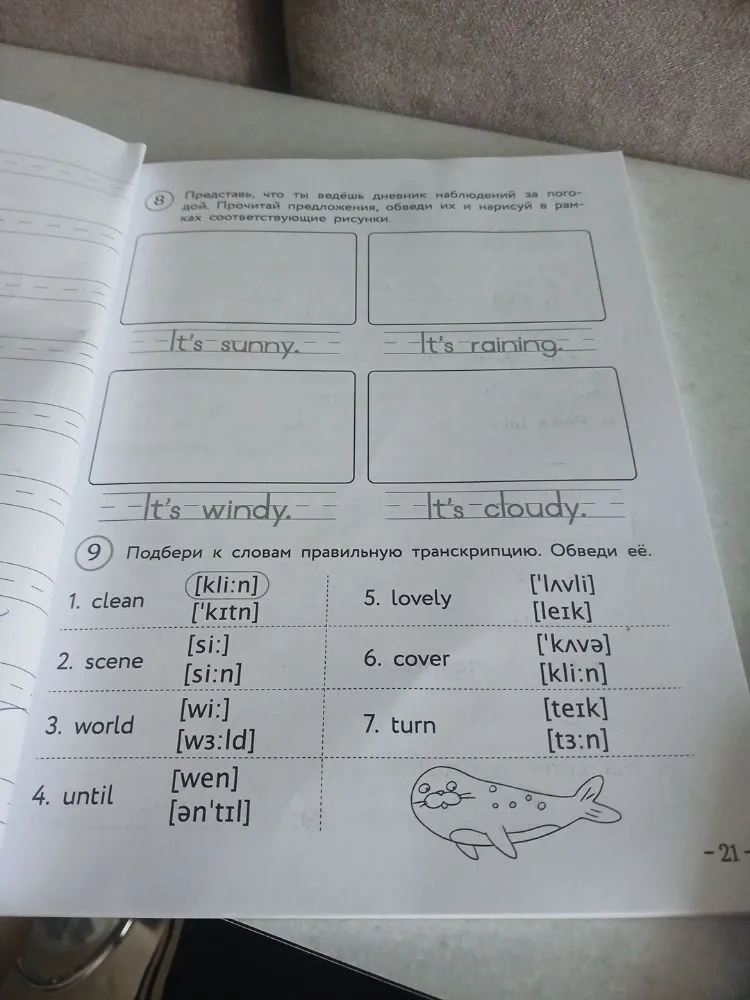 8 Представь, что ты ведёшь дневник наблюдений за пого-
дой. Прочитай предложения, обведи их и нарисуй в рам-
ках соответствующие рисунки.
It's sunny. It's raining.
It's windy. It's cloudy.
9 Подбери к словам правильную транскрипцию. Обведи её.
1. clean [kli:n] ['kɪtn]
2. scene [si:] [si:n]
3. world [wi:] [wɜ:ld]
4. until [wen] [ən'tɪl]
5. lovely ['lʌvli] [leɪk]
6. cover ['kʌvə] [kli:n]
7. turn [teɪk] [tɜ:n]
- 21 -